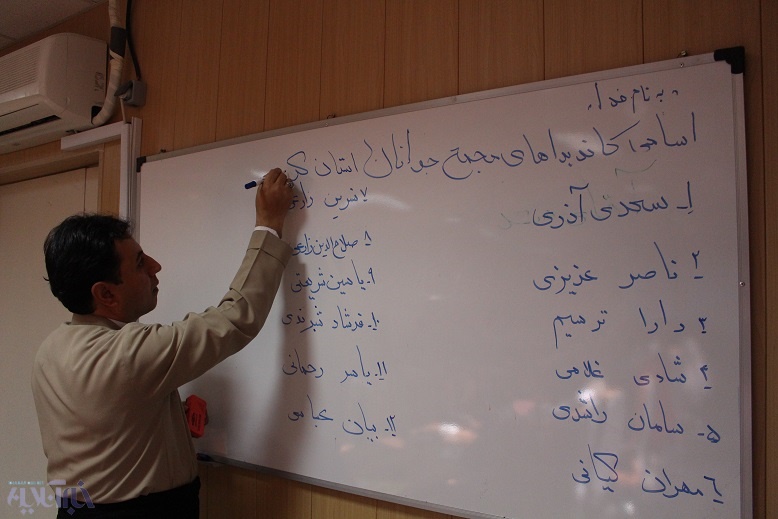 به نام خدا
اسامی کاندیداهای مجمع جوانان استان
۱- سعدی آذری
۲- ناصر عزیزی
۳- دارا ترسیم
۴- شادی غلامی
۵- سامان راشدی
۶- مهران کیانی
۷- نسرین
۸- صلاح الدین زارعی
۹- یاسین شریعتی
۱۰- فرشاد
۱۱- یاسر رحمانی
۱۲- بیان عباسی
خبرآنلاین